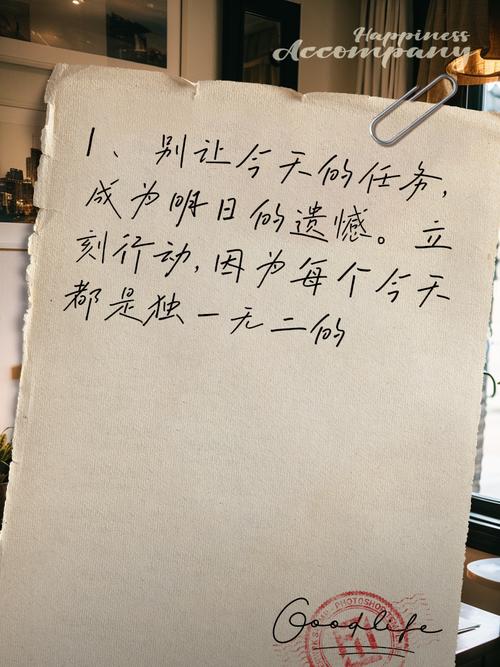 Happiness
Accompany
1、别让今天的任务，
成为明日的遗憾。立
刻行动，因为每个今天
都是独一无二的
PHOTOSHOP
Good life